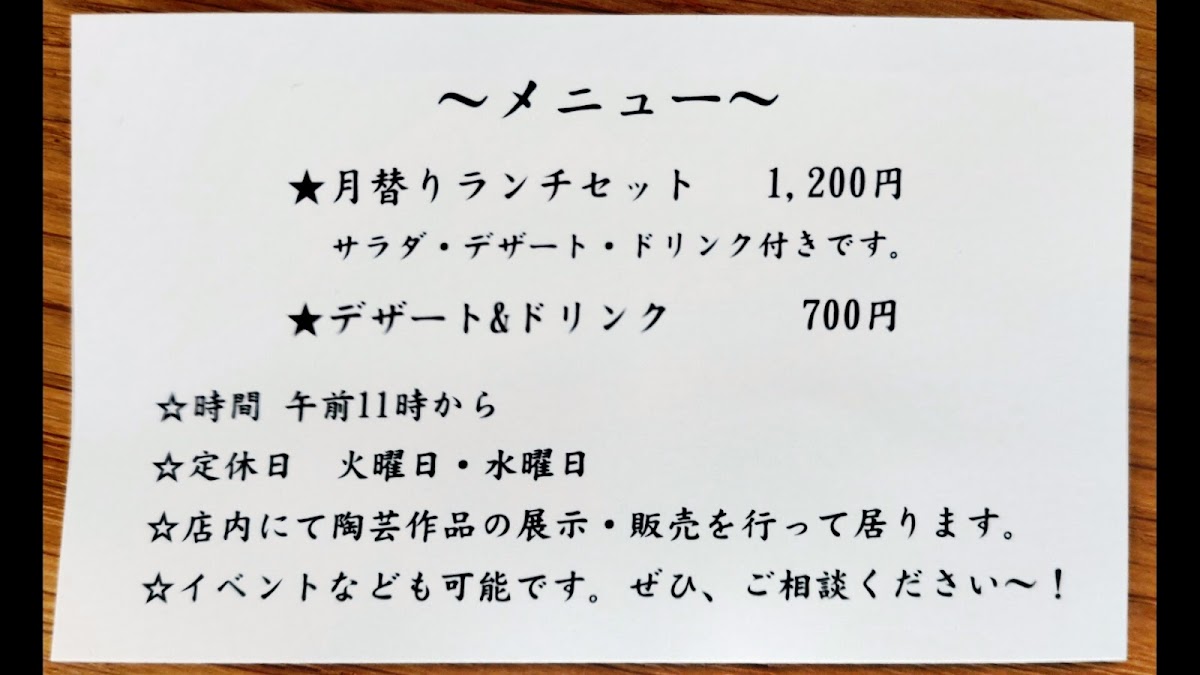 〜メニュー〜
★月替りランチセット 1,200円
サラダ・デザート・ドリンク付きです。
★デザート&ドリンク 700円
☆時間 午前11時から
☆定休日 火曜日・水曜日
☆店内にて陶芸作品の展示・販売を行って居ります。
☆イベントなども可能です。ぜひ、ご相談ください〜!